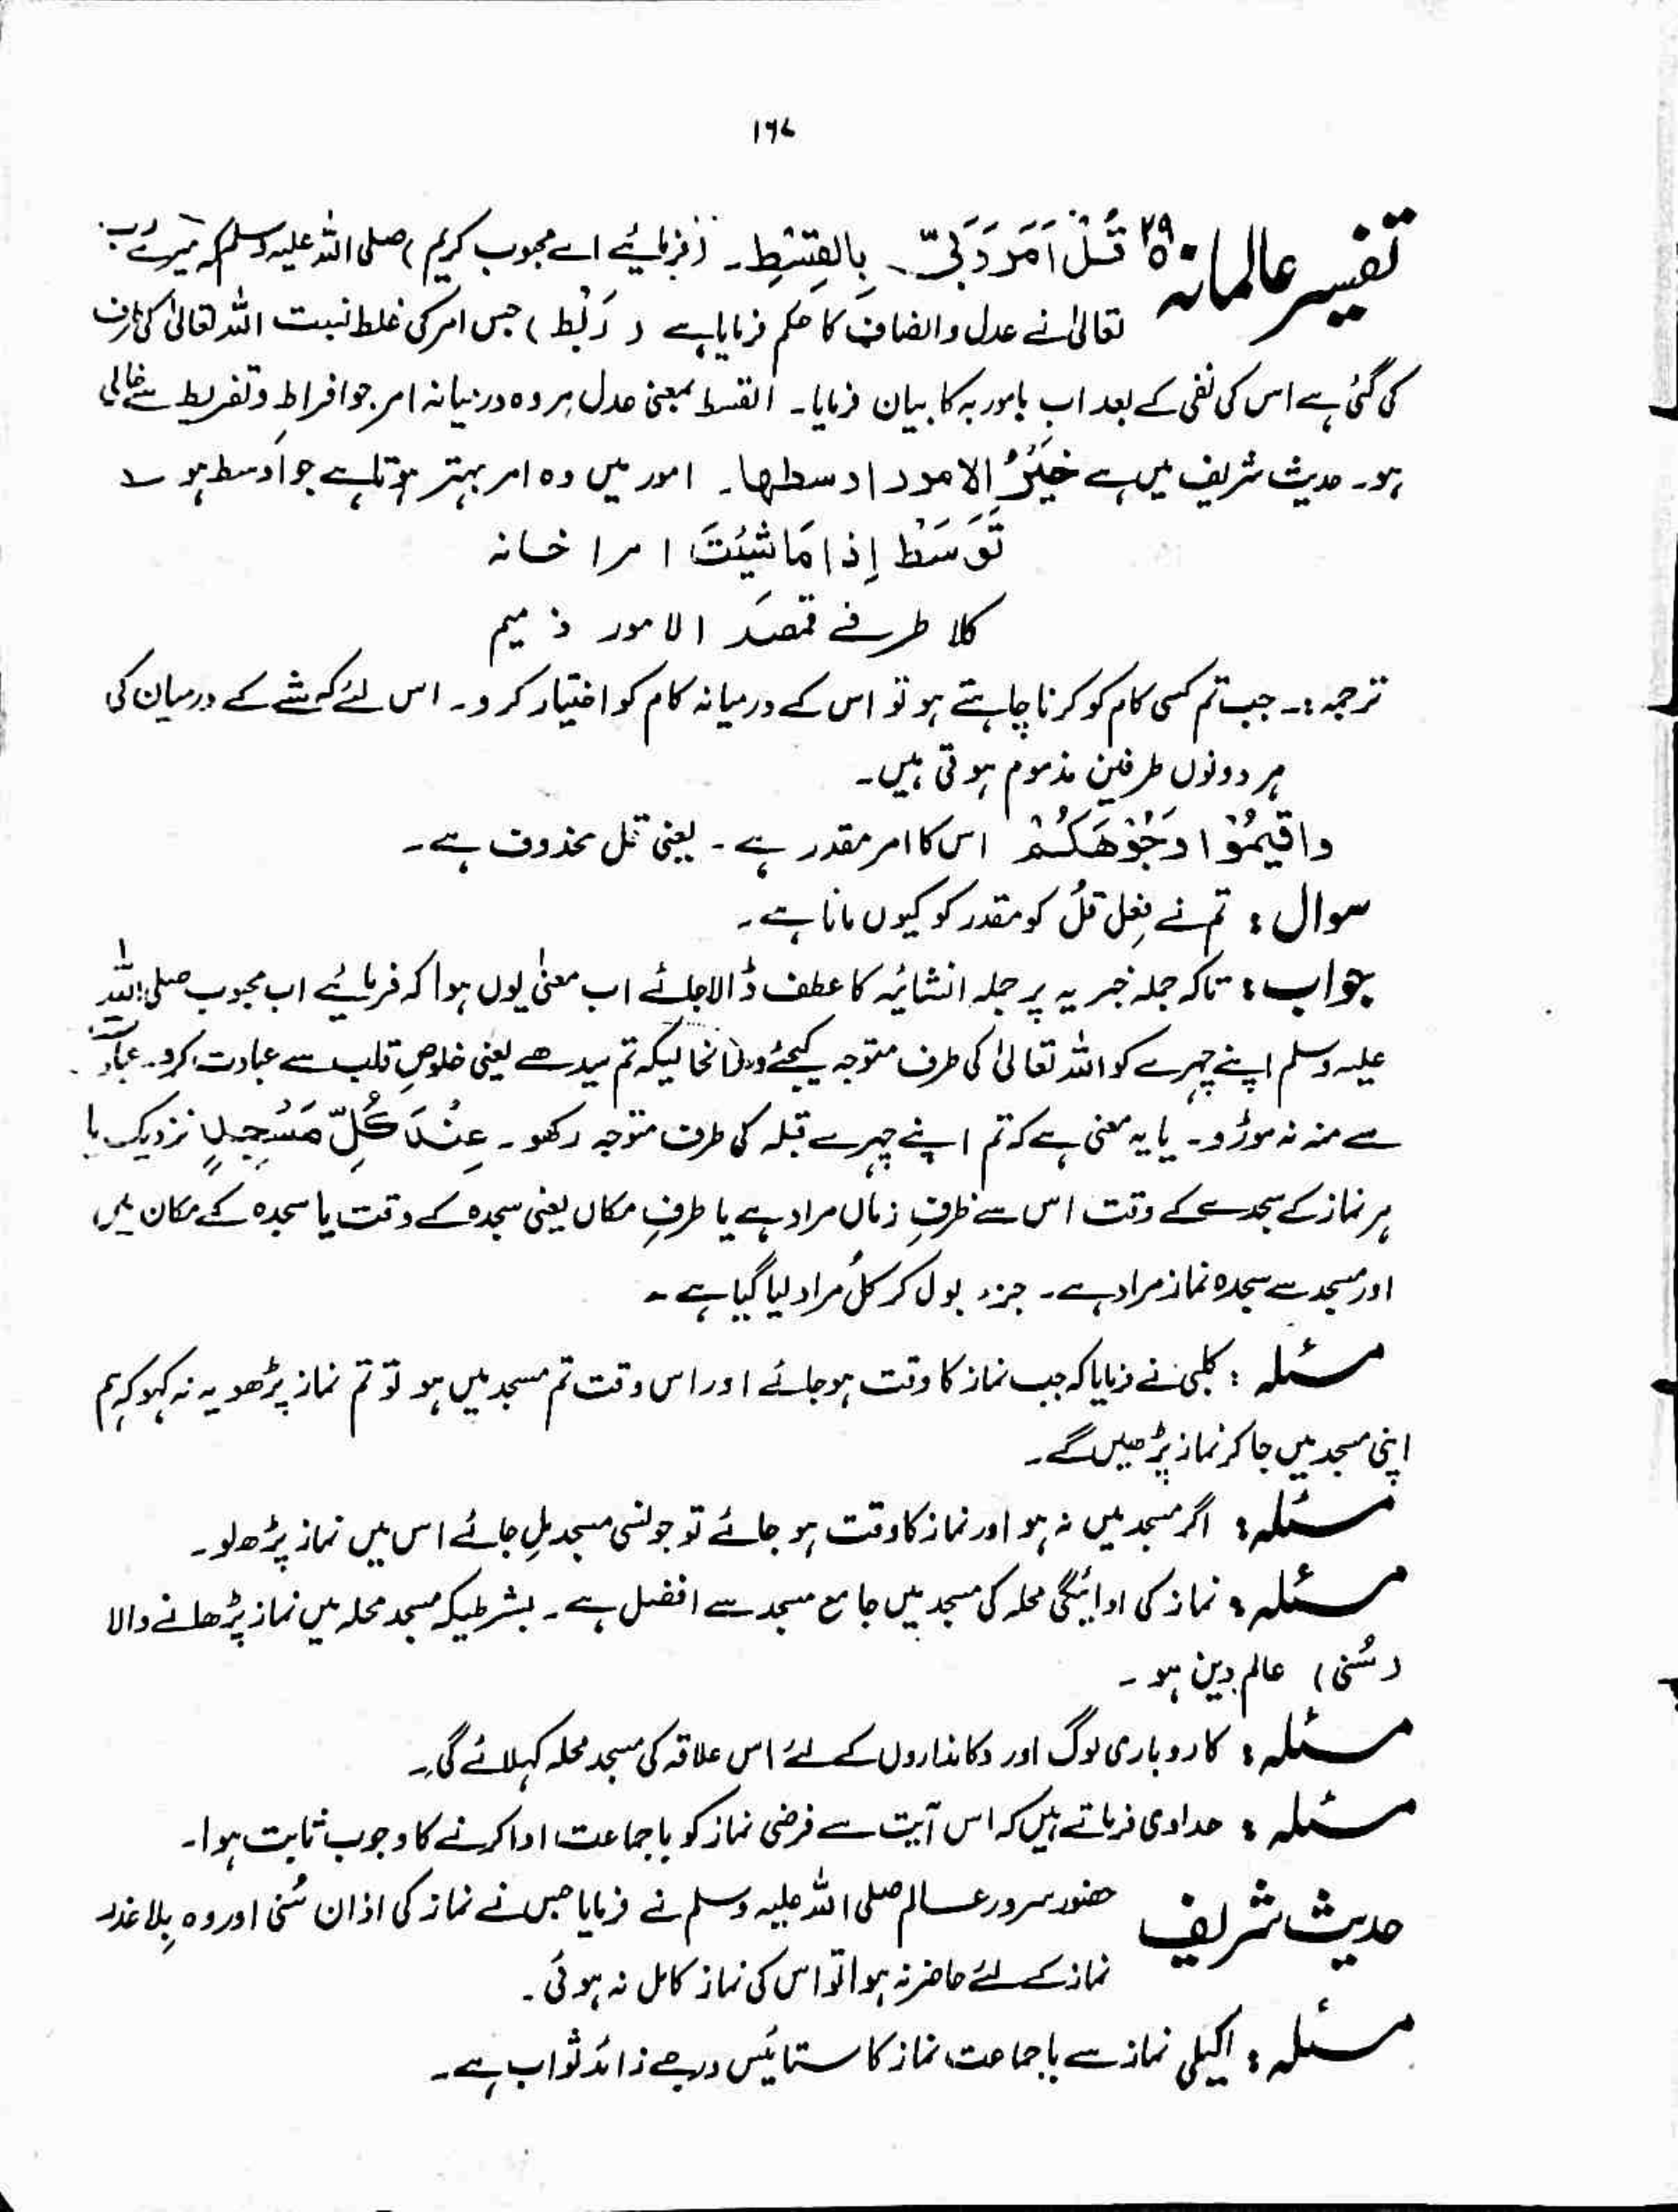 ۱۶۷
تفسیر عالمانہ ۲۹ قُلْ اَمَرَ رَبِّیْ بِالْقِسْطِ۔ (فرمائیے اے محبوب کریم) صلی اللہ علیہ وسلم کہ میرے رب
تعالیٰ نے عدل وانصاف کا حکم فرمایا ہے (رَبْط) جس امر کی غلط نسبت اللہ تعالیٰ کی طرف
کی گئی ہے اس کی نفی کے بعد اب مامور بہ کا بیان فرمایا۔ القسط بمعنیٰ عدل ہر وہ درمیانہ امر جو افراط و تفریط سے خالی
ہو۔ حدیث شریف میں ہے خَیْرُ الامور اوسطها۔ امور میں وہ امر بہتر ہوتا ہے جو اوسط ہو ؎
تَوَسَّطْ إِذَا مَا شِئْتَ امرا خانہ
کلا طرفے قصدَ الامور ذمیم
ترجمہ:۔ جب تم کسی کام کو کرنا چاہتے ہو تو اس کے درمیانہ کام کو اختیار کرو۔ اس لئے کہ شے کے درمیان کی
ہر دونوں طرفین مذموم ہوتی ہیں۔
واقیمُوْا وُجُوْهَكُمْ اس کا امر مقدر ہے۔ یعنی قل محذوف ہے۔
سوال : تم نے فِعل قُل کو مقدر کو کیوں مانا ہے۔
جواب : تاکہ جملہ خبریہ پر جملہ انشائیہ کا عطف ڈالا جائے اب معنیٰ یوں ہوا کہ فرمائیے اب محبوب صلی اللہ
علیہ وسلم اپنے چہرے کو اللہ تعالیٰ کی طرف متوجہ کیجئے درانحالیکہ تم سیدھے یعنی خلوصِ قلب سے عبادت کرو۔ عبادت
سے منہ نہ موڑو۔ یا یہ معنی ہے کہ تم اپنے چہرے قبلہ کی طرف متوجہ رکھو۔ عِنْدَ كُلِّ مَسْجِدٍ نزدیک یا
ہر نماز کے سجدے کے وقت اس سے ظرفِ زماں مراد ہے یا ظرفِ مکاں یعنی سجدہ کے وقت یا سجدہ کے مکان میں
اور مسجد سے سجدہ نماز مراد ہے۔ جزء بول کر کُل مراد لیا گیا ہے۔
مسئلہ : کلبی نے فرمایا کہ جب نماز کا وقت ہو جائے اور اس وقت تم مسجد میں ہو تو تم نماز پڑھو یہ نہ کہو کہ ہم
اپنی مسجد میں جا کر نماز پڑھیں گے۔
مسئلہ : اگر مسجد میں نہ ہو اور نماز کا وقت ہو جائے تو جونسی مسجد مِل جائے اس میں نماز پڑھ لو۔
مسئلہ : نماز کی ادائیگی محلہ کی مسجد میں جامع مسجد سے افضل ہے۔ بشرطیکہ مسجد محلہ میں نماز پڑھانے والا
(سُنی) عالم دین ہو۔
مسئلہ : کاروباری لوگ اور دکانداروں کے لئے اس علاقہ کی مسجد محلہ کہلائے گی۔
مسئلہ : حدادی فرماتے ہیں کہ اس آیت سے فرضی نماز کو باجماعت ادا کرنے کا وجوب ثابت ہوا۔
حدیث شریف حضور سرور عالم صلی اللہ علیہ وسلم نے فرمایا جس نے نماز کی اذان سُنی اور وہ بِلا عذر
نماز کے لئے حاضر نہ ہوا تو اس کی نماز کامل نہ ہوئی۔
مسئلہ : اکیلی نماز سے باجماعت نماز کا ستائیس درجے زائد ثواب ہے۔